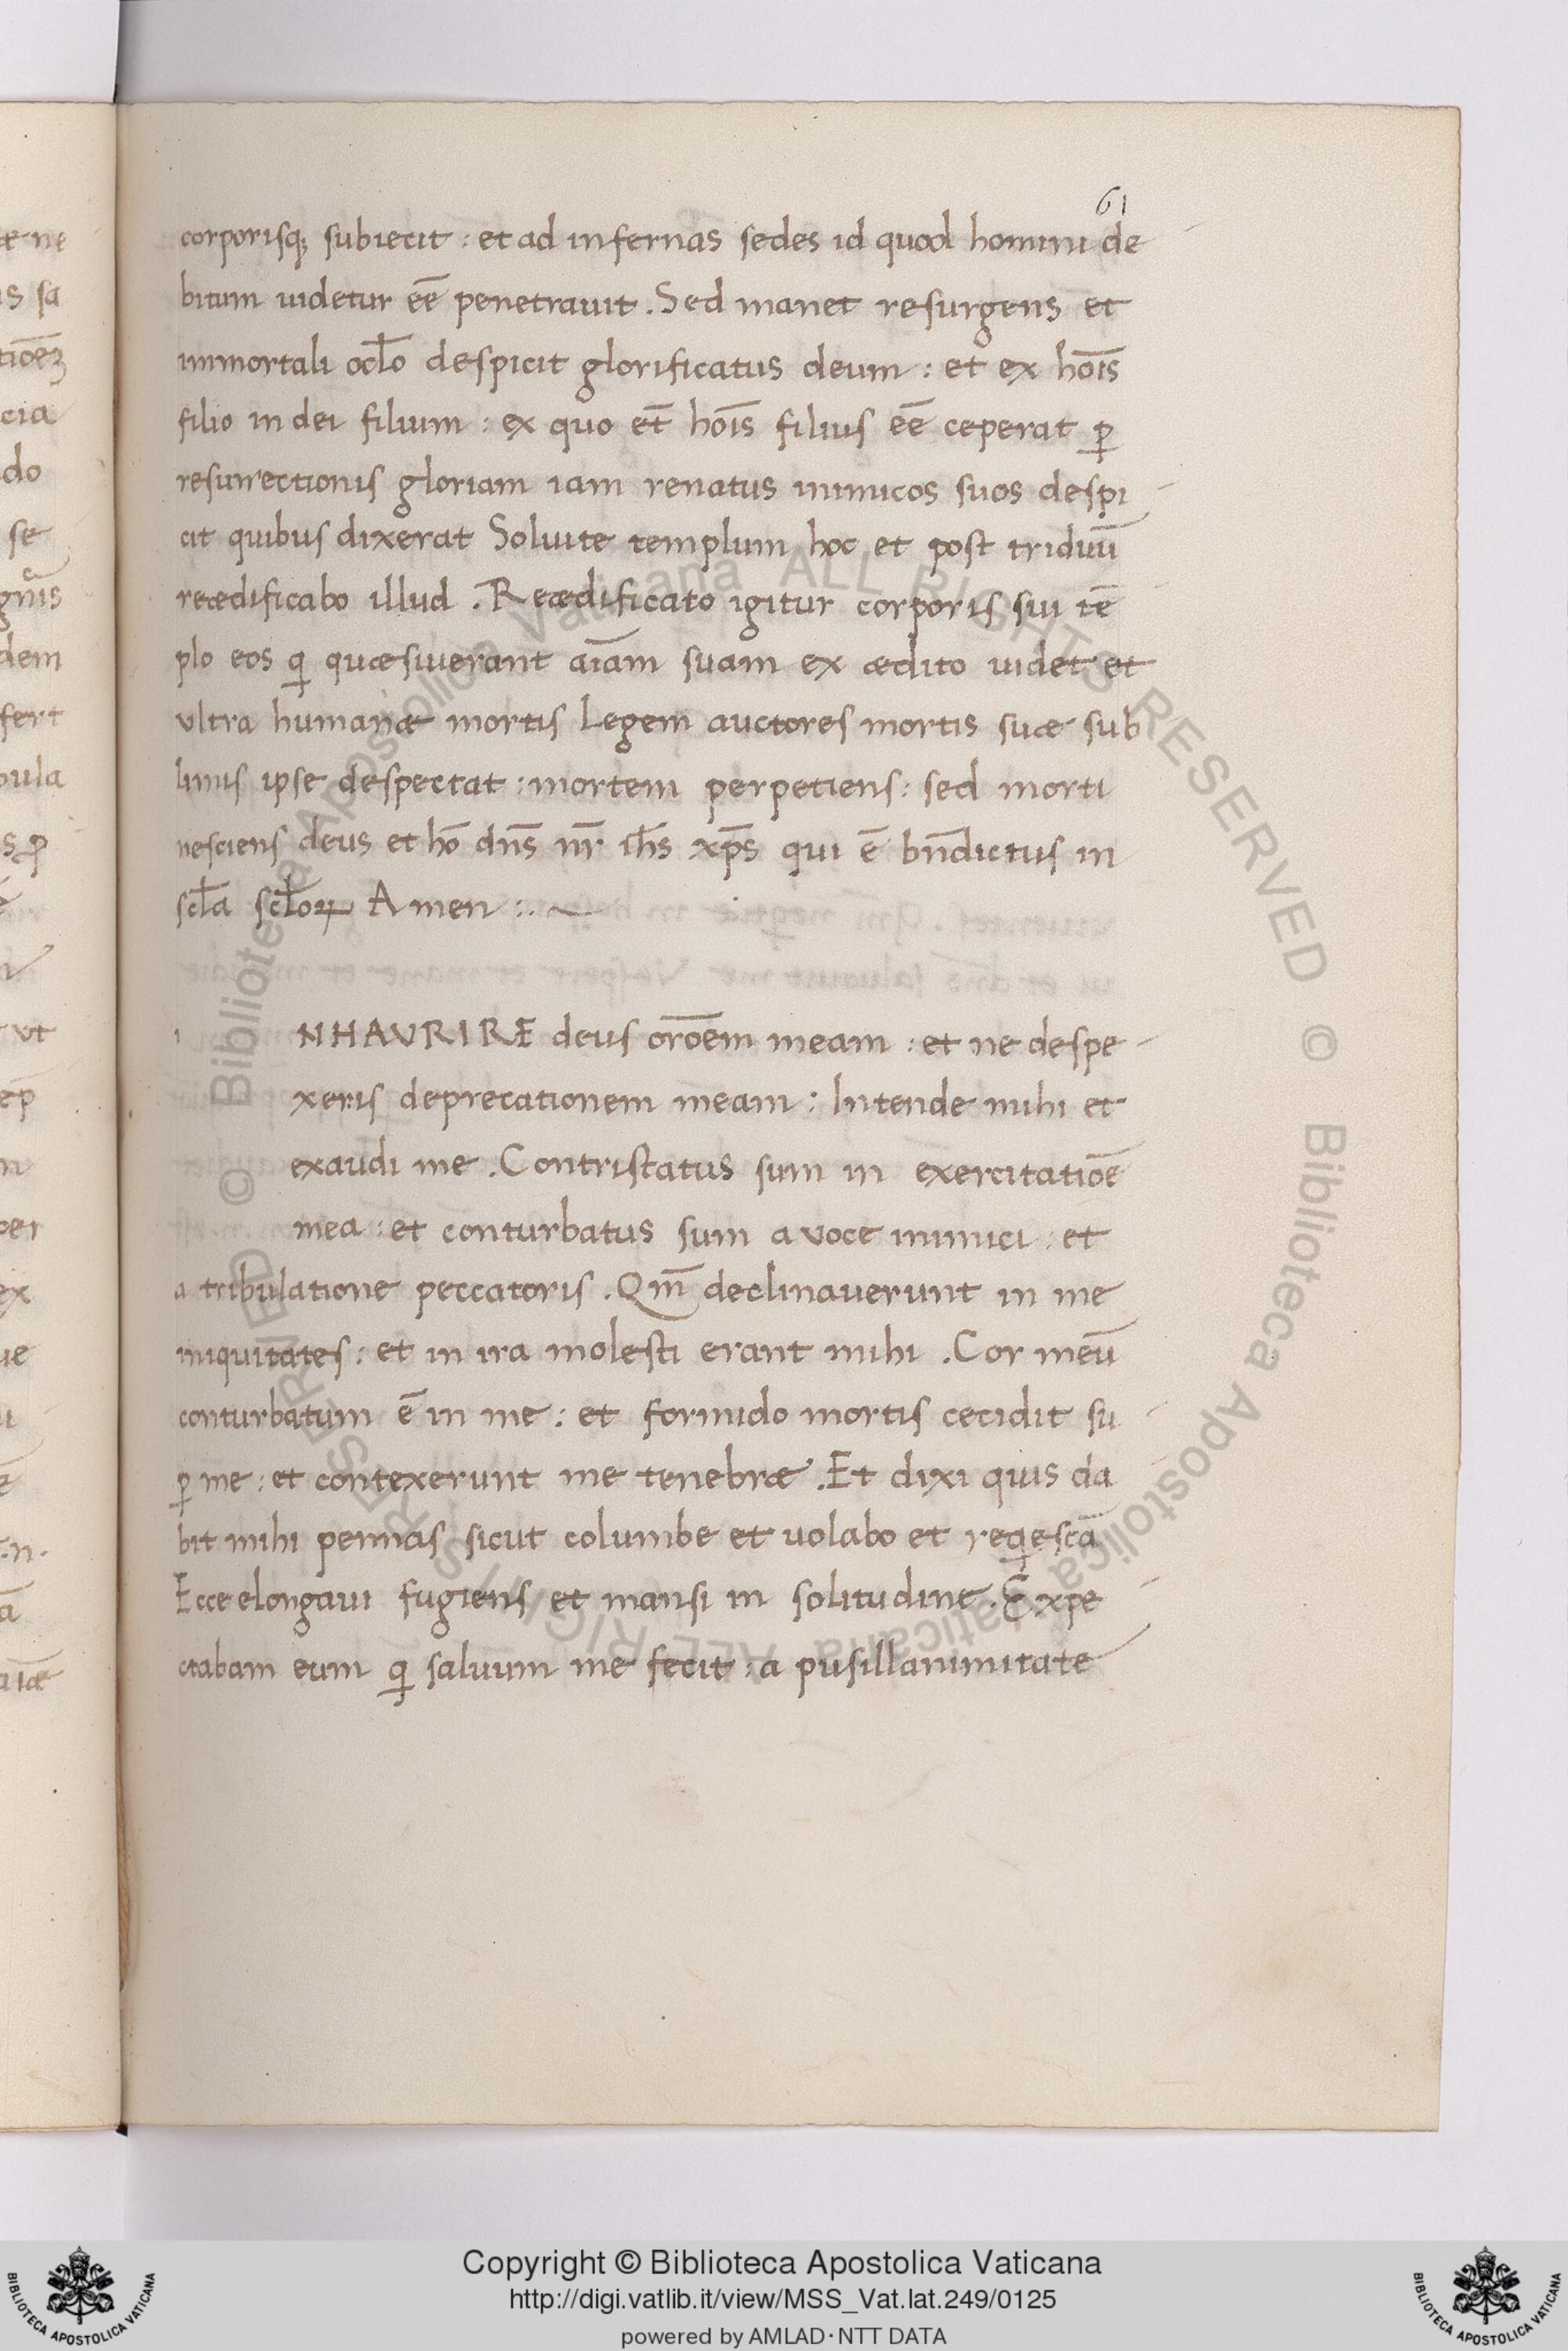 61
corporisq; subiecit : et ad infernas sedes id quod homini de
bitum uidetur ēē penetrauit . Sed manet resurgens et
immortali ocl̄o despicit glorificatus deum : et ex hoīs
filio in dei filium : ex quo et̄ hoīs filius ēē ceperat ꝑ
resurrectionis gloriam iam renatus inimicos suos despi
cit quibus dixerat Soluite templum hoc et post triduū
reædificabo illud . Reædificato igitur corporis sui tē
plo eos q̄ quæsiuerant aīam suam ex ædito uidet et
ultra humanæ mortis legem auctores mortis suæ sub
limis ipse despectat : mortem perpetiens : sed morti
nesciens deus et hō dn̄s nr̄ ih̄s xp̄s qui ē bn̄dictus in
scl̄a scl̄oꝝ Amen :. ~
i NHAVRIRE deus orōem meam : et ne despe
xeris deprecationem meam : Intende mihi et
exaudi me . Contristatus sum in exercitatiōe
mea : et conturbatus sum a voce inimici : et
a tribulatione peccatoris . Qm̄ declinauerunt in me
iniquitates : et in ira molesti erant mihi . Cor meū
conturbatum ē in me : et formido mortis cecidit su
ꝑ me : et contexerunt me tenebræ . Et dixi quis da
bit mihi pennas sicut columbe et uolabo et reqescā
Ecce elongaui fugiens et mansi in solitudine . Expe
ctabam eum q̄ saluum me fecit : a pusillanimitate
© Biblioteca Apostolica Vaticana ALL RIGHTS RESERVED
© Biblioteca Apostolica Vaticana ALL RIGHTS RESERVED
Copyright © Biblioteca Apostolica Vaticana
http://digi.vatlib.it/view/MSS_Vat.lat.249/0125
powered by AMLAD·NTT DATA
BIBLIOTECA APOSTOLICA VATICANA
BIBLIOTECA APOSTOLICA VATICANA